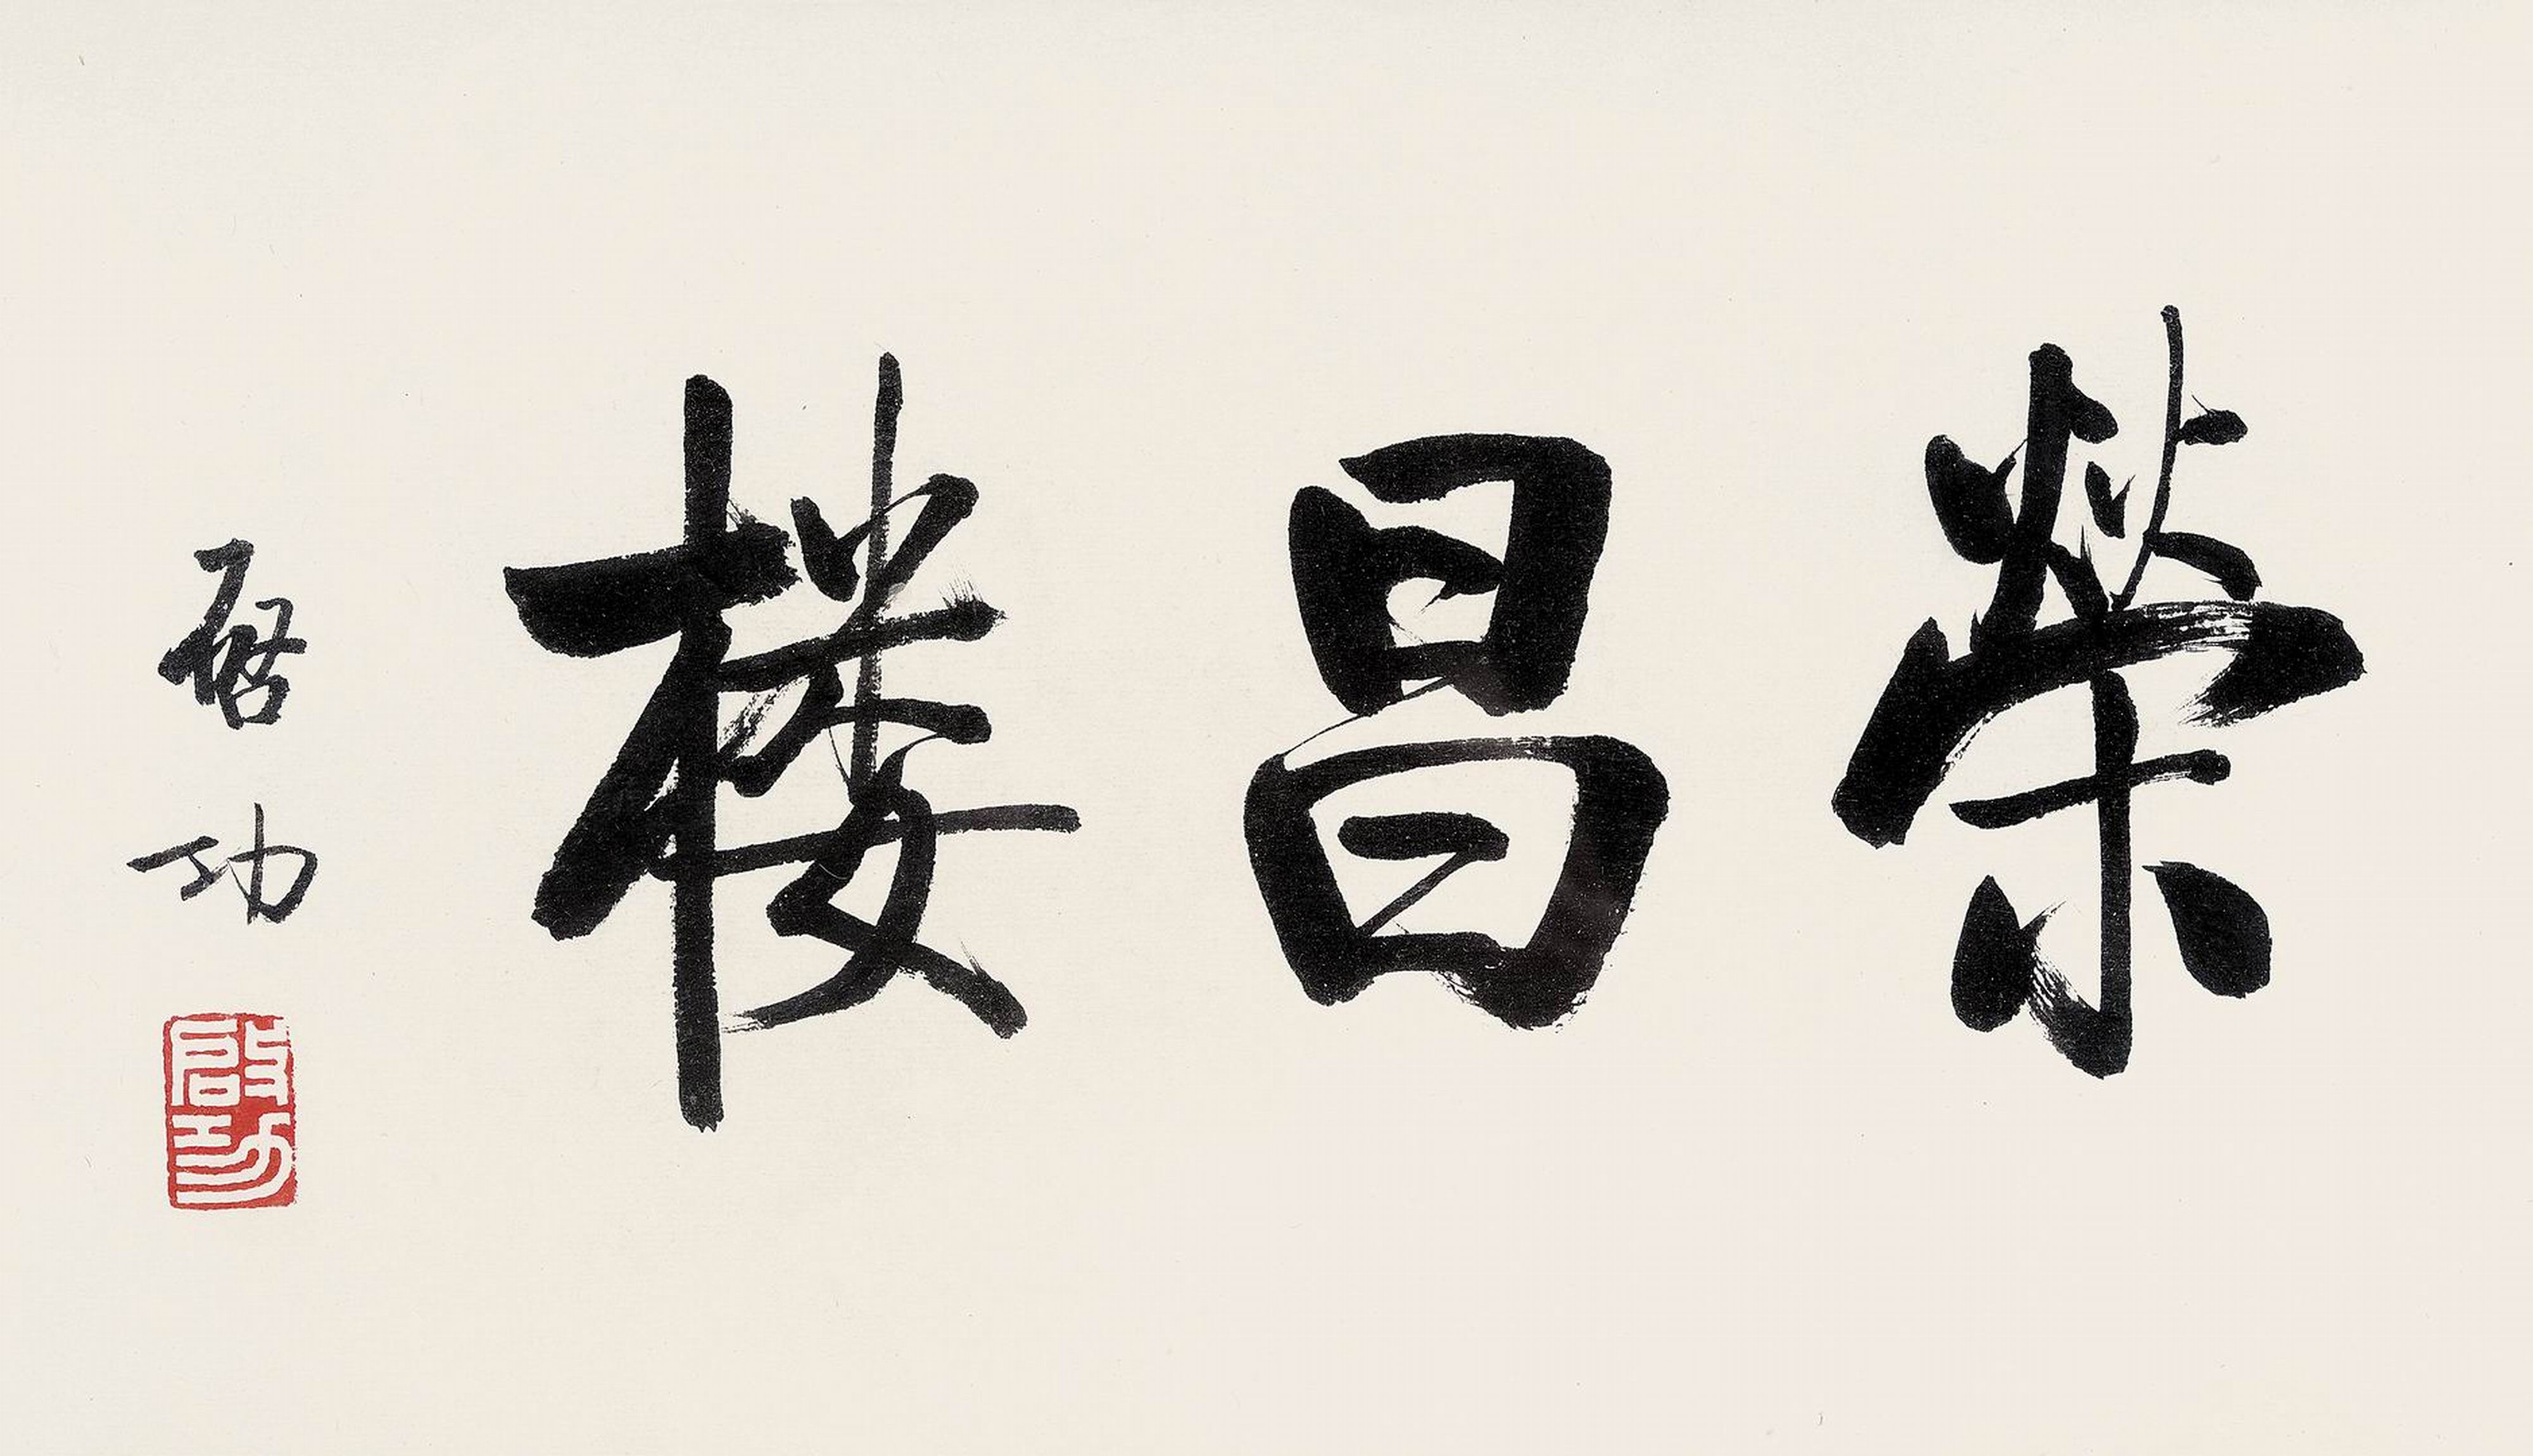 榮昌楼
啓功
啓功